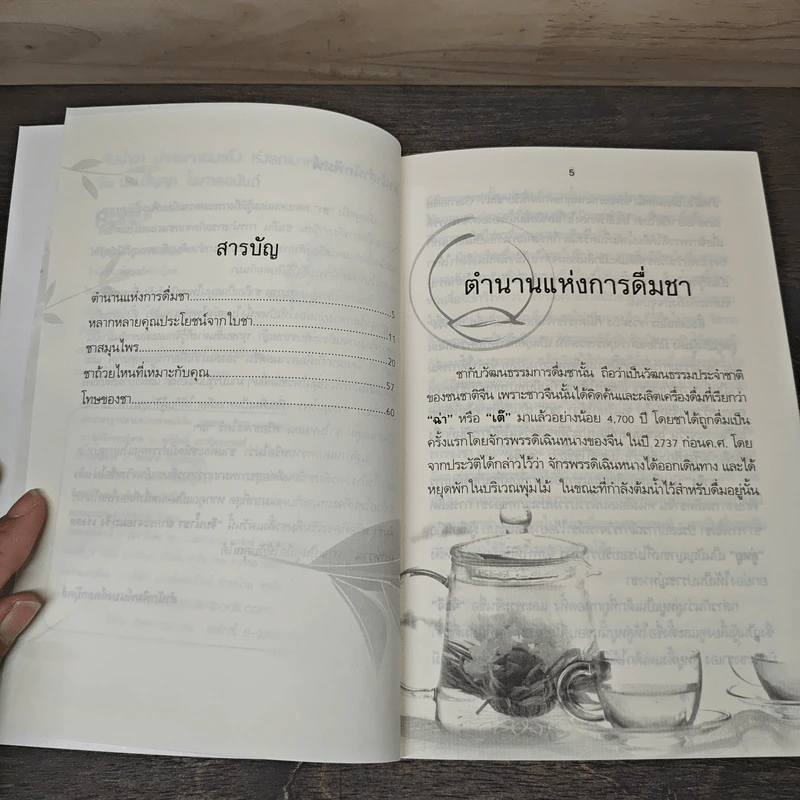 สารบัญ
ตำนานแห่งการดื่มชา.....5
หลากหลายคุณประโยชน์จากใบชา.....11
ชาสมุนไพร.....20
ชาถ้วยไหนที่เหมาะกับคุณ.....57
โทษของชา.....60
5
ตำนานแห่งการดื่มชา
ชากับวัฒนธรรมการดื่มชานั้น ถือว่าเป็นวัฒนธรรมประจำชาติ
ของชนชาติจีน เพราะชาวจีนนั้นได้คิดค้นและผลิตเครื่องดื่มที่เรียกว่า
"ฉ่า" หรือ "เต๊" มาแล้วอย่างน้อย 4,700 ปี โดยชาได้ถูกดื่มเป็น
ครั้งแรกโดยจักรพรรดิเฉินหนางของจีน ในปี 2737 ก่อนค.ศ. โดย
จากประวัติได้กล่าวไว้ว่า จักรพรรดิเฉินหนางได้ออกเดินทาง และได้
หยุดพักในบริเวณพุ่มไม้ ในขณะที่กำลังต้มน้ำไว้สำหรับดื่มอยู่นั้น